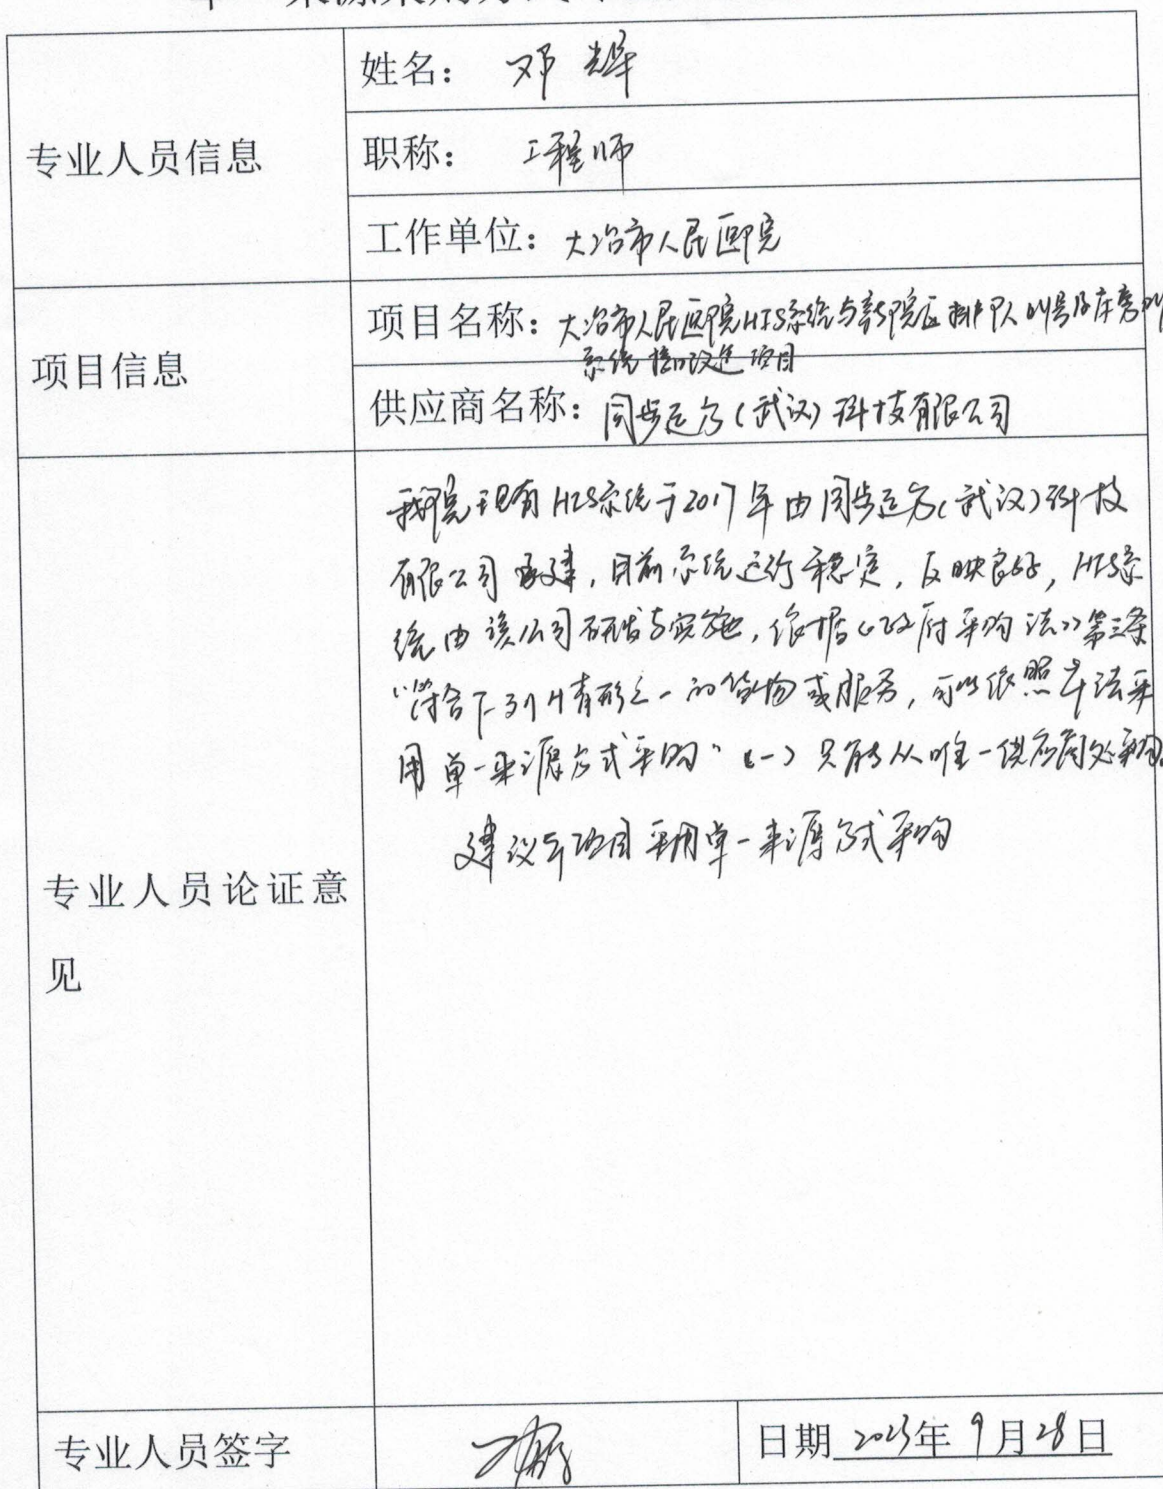 专业人员信息
姓名： 邓辉
职称： 工程师
工作单位：大冶市人民医院
项目信息
项目名称：大冶市人民医院HIS系统与新院区排队叫号及床旁
系统接口改造项目
供应商名称：同步远方（武汉）科技有限公司
专业人员论证意
见
我院现有HIS系统于2017年由同步远方（武汉）科技
有限公司承建，目前系统运行稳定，反映良好，HIS系
统由该公司研发与实施，依据《政府采购法》第三条
“符合下列情形之一的货物或服务，可以依照本法采
用单一来源方式采购”（一）只能从唯一供应商处采购。
建议本项目采用单一来源方式采购
专业人员签字
日期 2023年9月28日